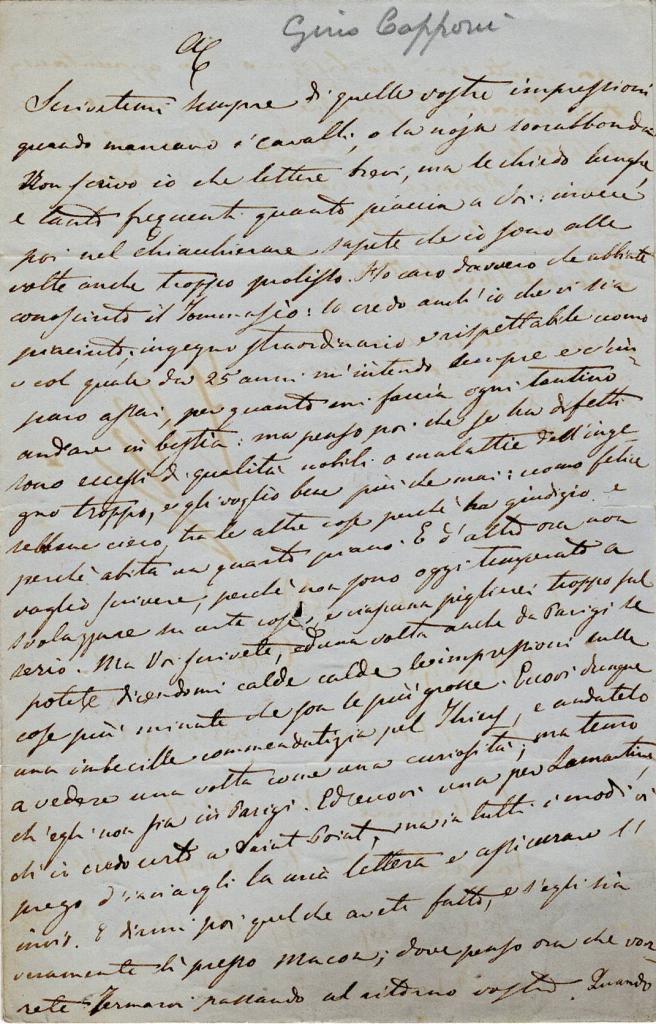 Gino Capponi
AC
Scrivetemi sempre di quelle vostre impressioni
quando mancano i cavalli, o la noja sovrabbonda
Non scrivo io che lettere brevi, ma le chiedo lunghe,
e tanto frequenti quanto piaccia a Voi: invece
poi nel chiacchierare sapete che io sono alle
volte anche troppo prolisso. Ho caro davvero che abbiate
conosciuto il Tommaseo: lo credo anch'io che vi sia
piaciuto; ingegno straordinario e rispettabile uomo
e col quale da 25 anni m'intendo sempre e
paro assai, per quanto mi faccia ogni tantino
andare in bestia: ma penso poi che se ha difetti
sono eccessi di qualità nobili o malattie dell'inge
gno troppo, e gli voglio bene più che mai: uomo felice
sebbene cieco, tra le altre cose perchè ha giudizio e
perchè abita un quarto piano. E d'altro ora non
voglio scrivere, perchè non sono oggi temperato a
svolazzare su certe cose, e ciascuna piglierei troppo sul
serio. Ma Voi scrivete, ed una volta anche da Parigi se
potete, dicendomi calde calde le impressioni sulle
cose più minute che son le più grosse. Eccovi dunque
una imbecille commendatizia pel Thiers, e andatelo
a vedere una volta come una curiosità; ma temo
ch'egli non sia in Parigi. Ed eccovi una per Lamartine,
di io credo certo a Saint Point, ma in tutti i modi vi
prego d'inviargli la mia lettera e assicurare l'
invio. E dirmi poi quel che avete fatto, e s'egli sia
veramente lì presso Macon; dove penso ora che vor
rete fermarvi passando al ritorno vostro. Quando